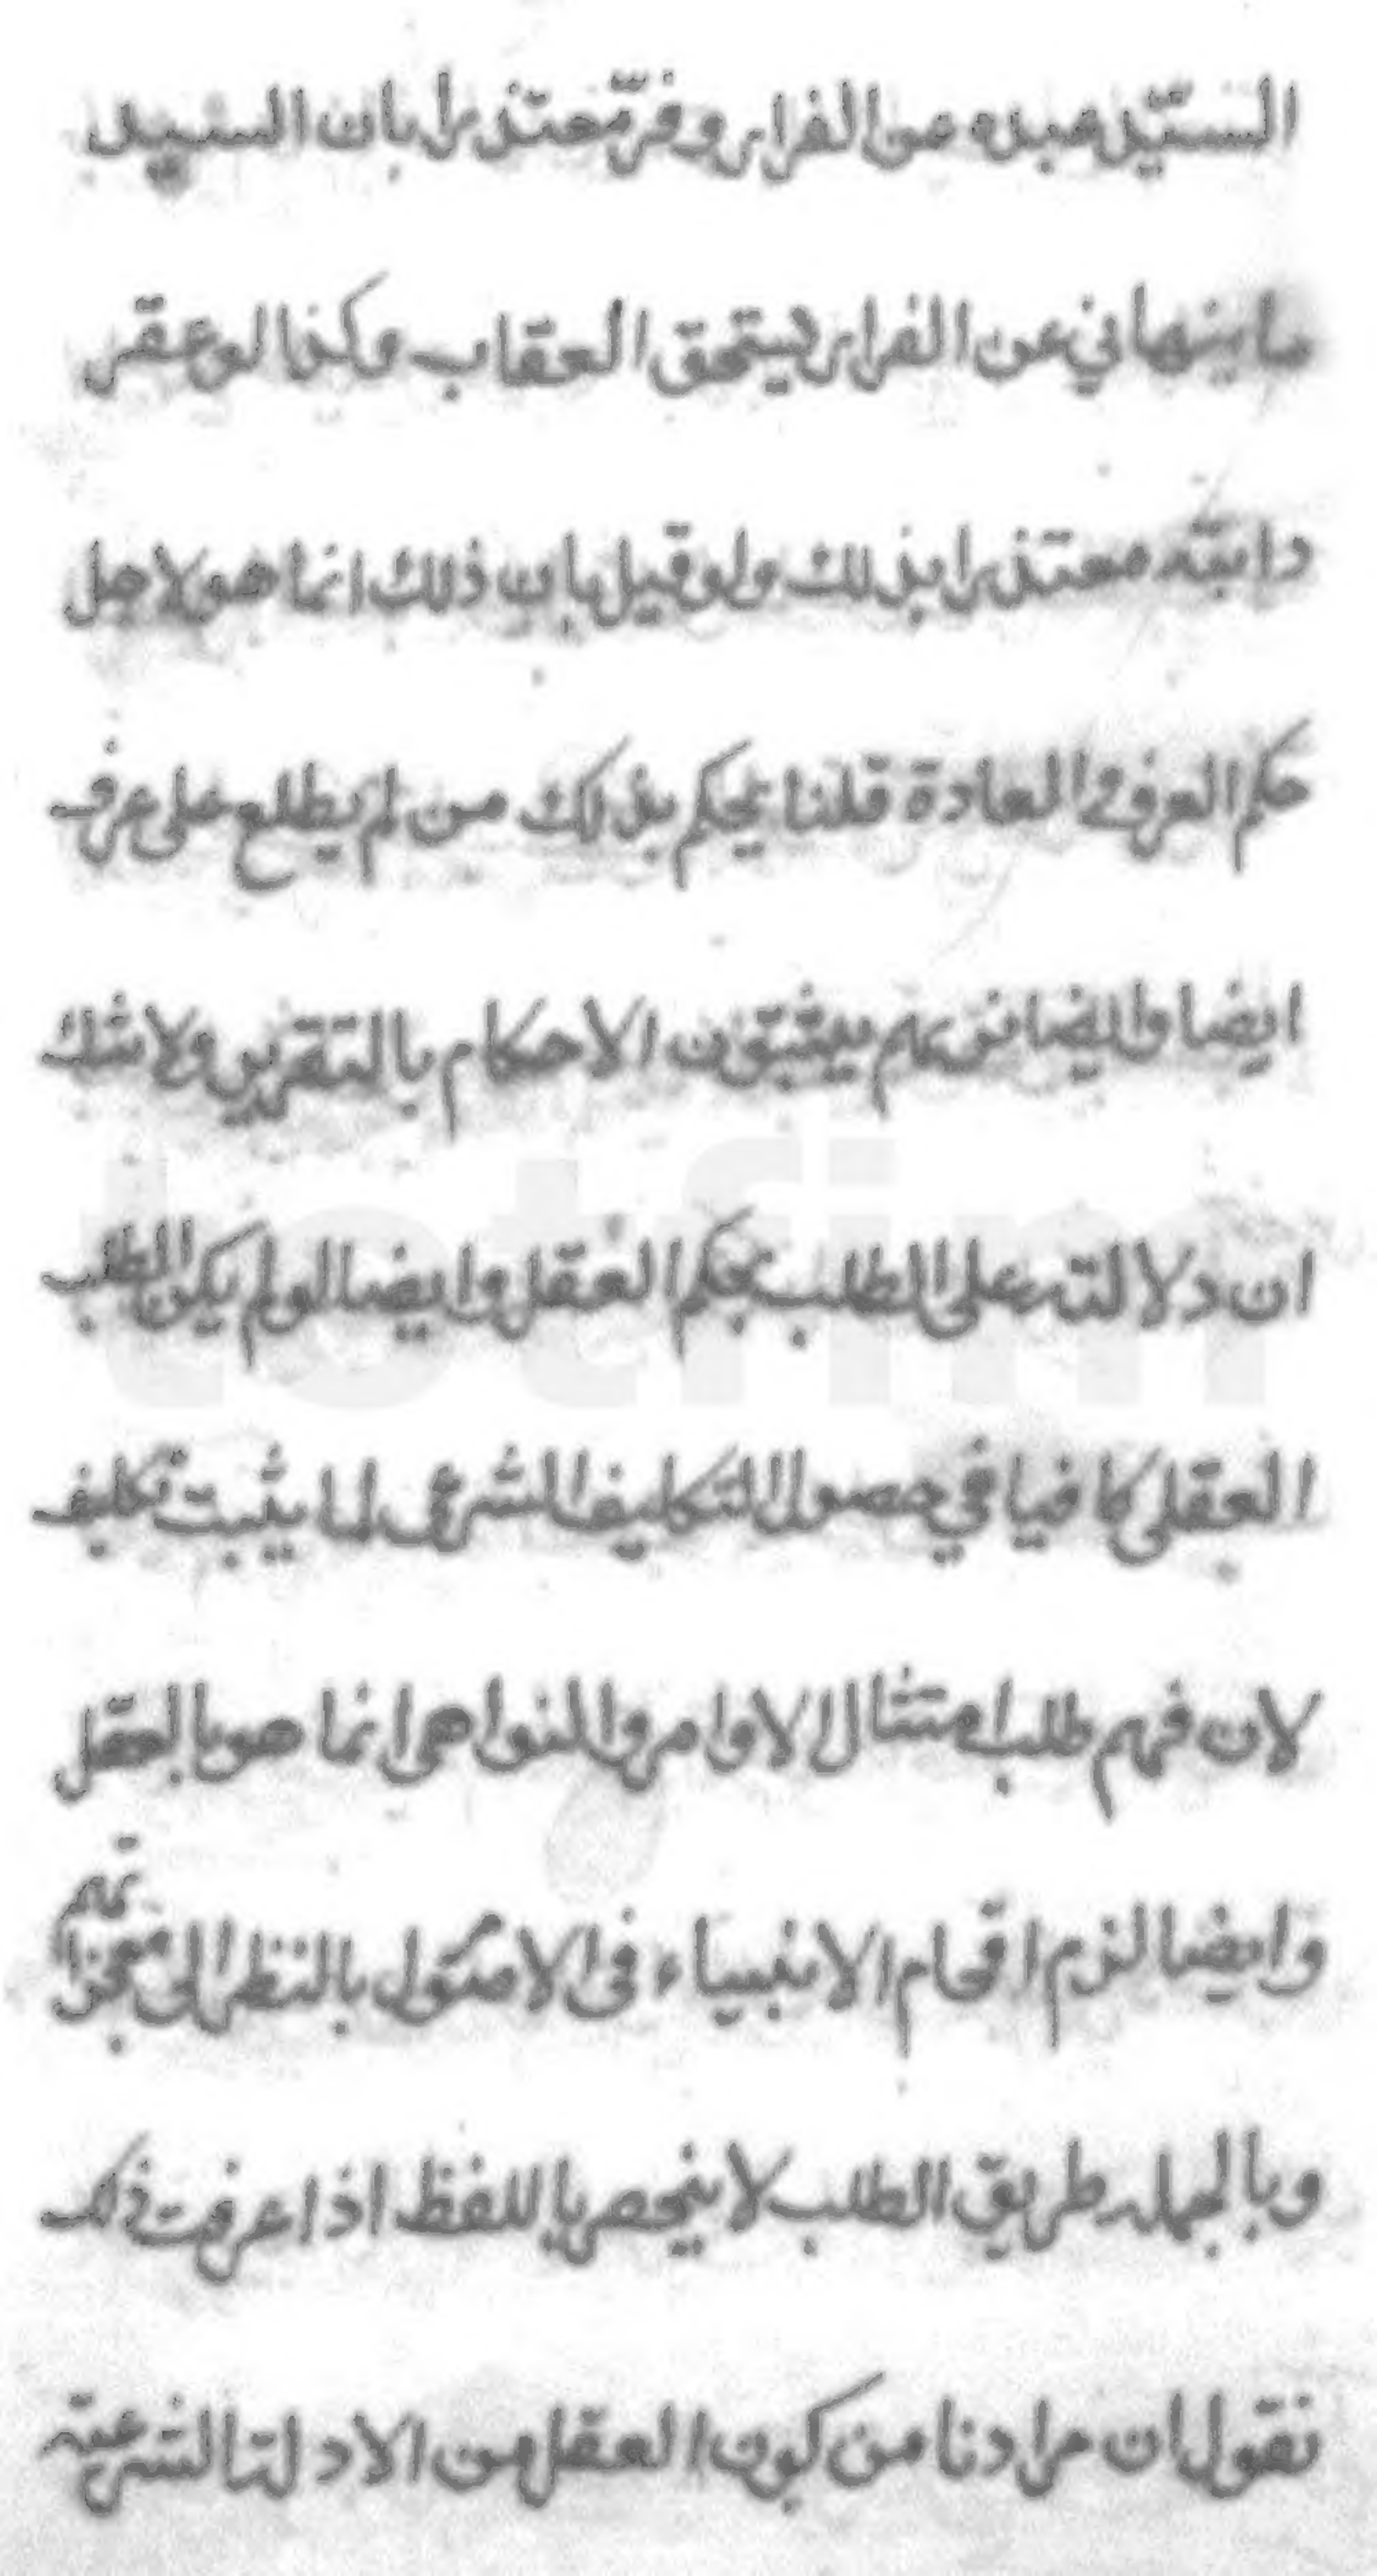 السيّد عبده عن الفرار وفرّ معتذرا بان السيد
ما ينهاني عن الفرار ليستحق العقاب وكذا لو عقر
دابته معتذرا بذلك ولو قيل بان ذلك انما هو لاجل
حكم العرف والعادة قلنا يحكم بذلك من لم يطلع على عرف
ايضا وايضا تريهم يثبتون الاحكام بالتقرير ولا شك
ان دلالته على الطلب بحكم العقل وايضا لو لم يكن الطلب
العقلى كافيا في حصول التكليف الشرعى لما يثبت تكليف
لان فهم طلب امتثال الاوامر والنواهى انما هو بالعقل
وايضا لزم افحام الانبياء فى الامر بالنظر الى معجزاتهم
وبالجمله طريق الطلب لا ينحصر باللفظ اذا عرفت ذلك
نقول ان مرادنا من كون العقل من الادلة الشرعية
totfim